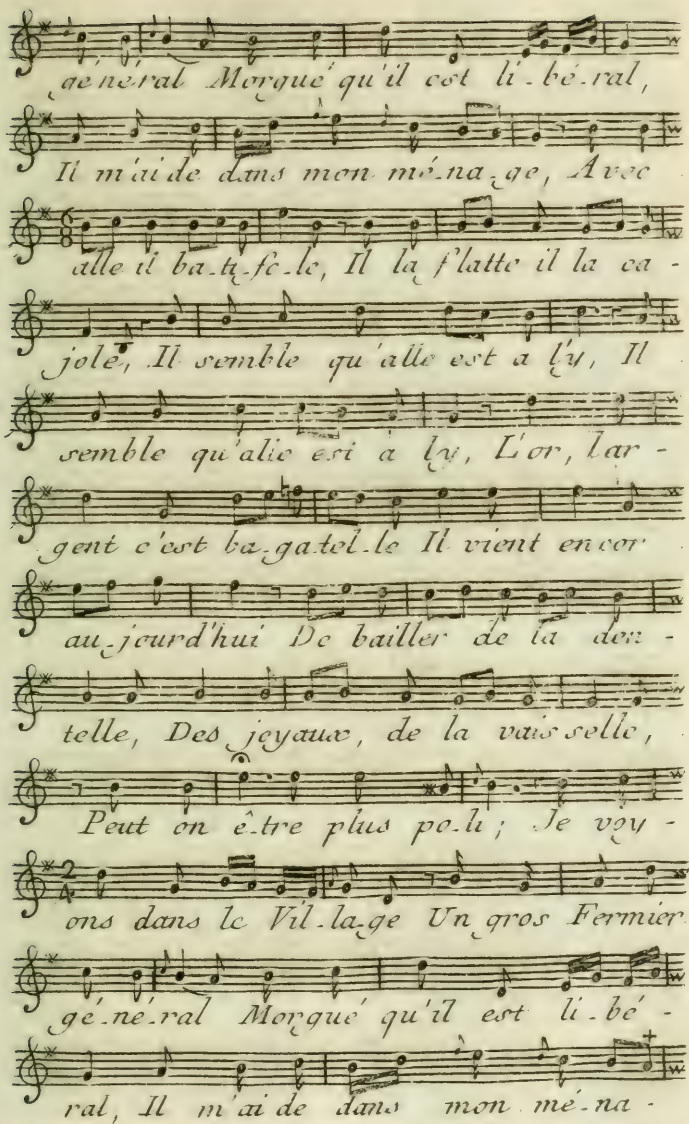 géneral Morgué qu'il est li-bé-ral,
Il m'aide dans mon mé-na-ge, Avec
6
8
alle il ba-ti-fo-le, Il la flatte il la ca-
jole, Il semble qu'alle est a l'y, Il
semble qu'alle est à ly, L'or, l'ar-
gent c'est ba-ga-tel-le Il vient encor
au-jourd'hui De bailler de la den-
telle, Des joyaux, de la vaisselle,
Peut on ê-tre plus po-li; Je voy-
2
4
ons dans le Vil-la-ge Un gros Fermier
gé-né-ral Morgué qu'il est li-bé-
ral, Il m'aide dans mon mé-na-